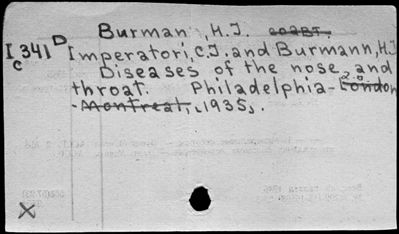 Burman, H.J. coaBT.
I 341 D Imperatori, C.J. and Burmann, H.J
C Diseases of the nose and
throat. Philadelphia-London
-Montreal, c1935.
X